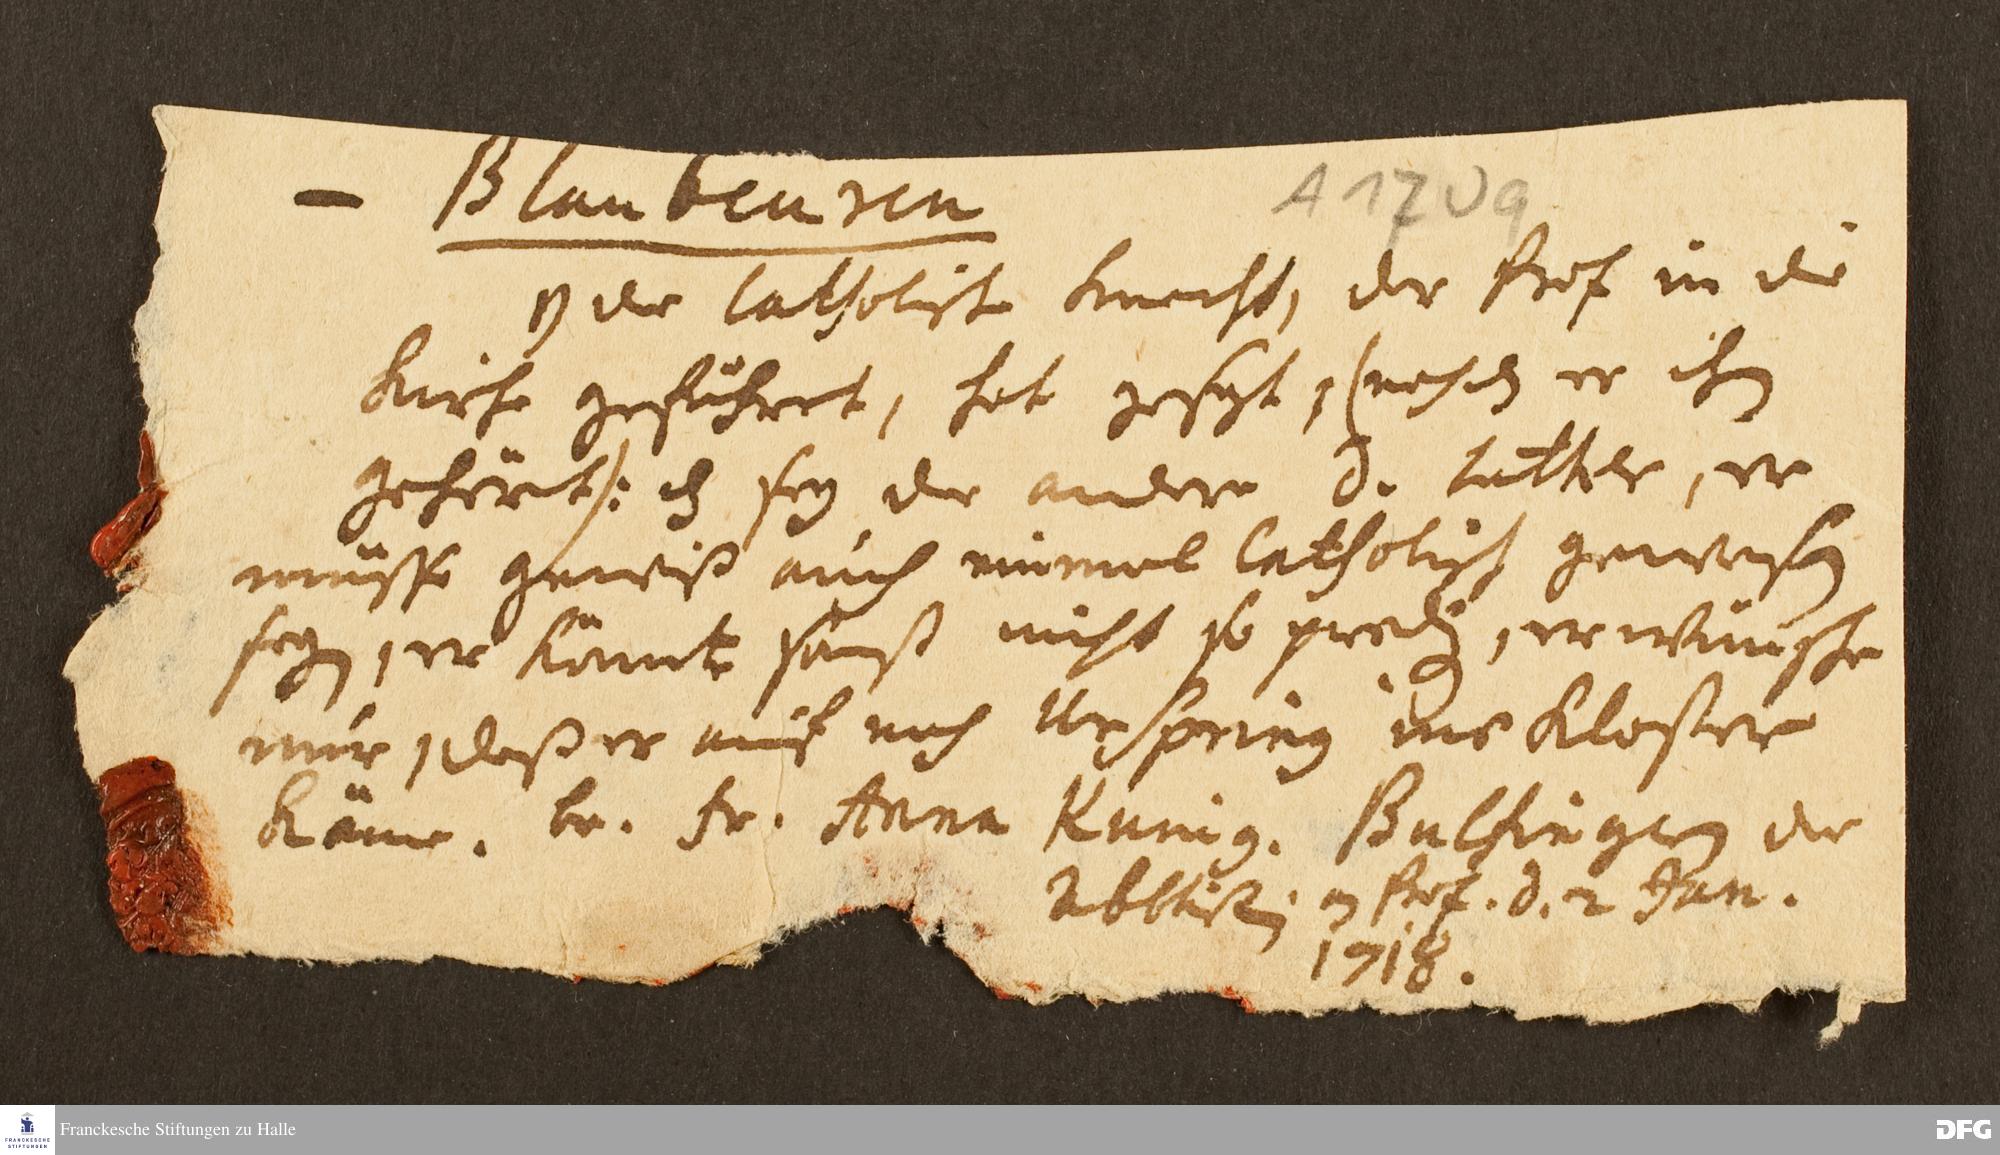 – Blaubeuren
A 17 09
1) der Catholische Knecht, der Prof in die
Kirche geführet, hat gesagt, (nachdem er ihn
gehöret): das sey der andere D. Luther, er
müsse gewiß auch einmal Catholisch gewesen
seyn, er könnte sonst nicht so predigen, er wünsche
nur, daß er auch nach Urspring ins Kloster
käme. br. Fr. Anna Kunig. Bulfingen der
Abbtißin an Prof. d. 2 Jan.
1718.
Franckesche Stiftungen zu Halle
FRANCKESCHE
STIFTUNGEN
DFG